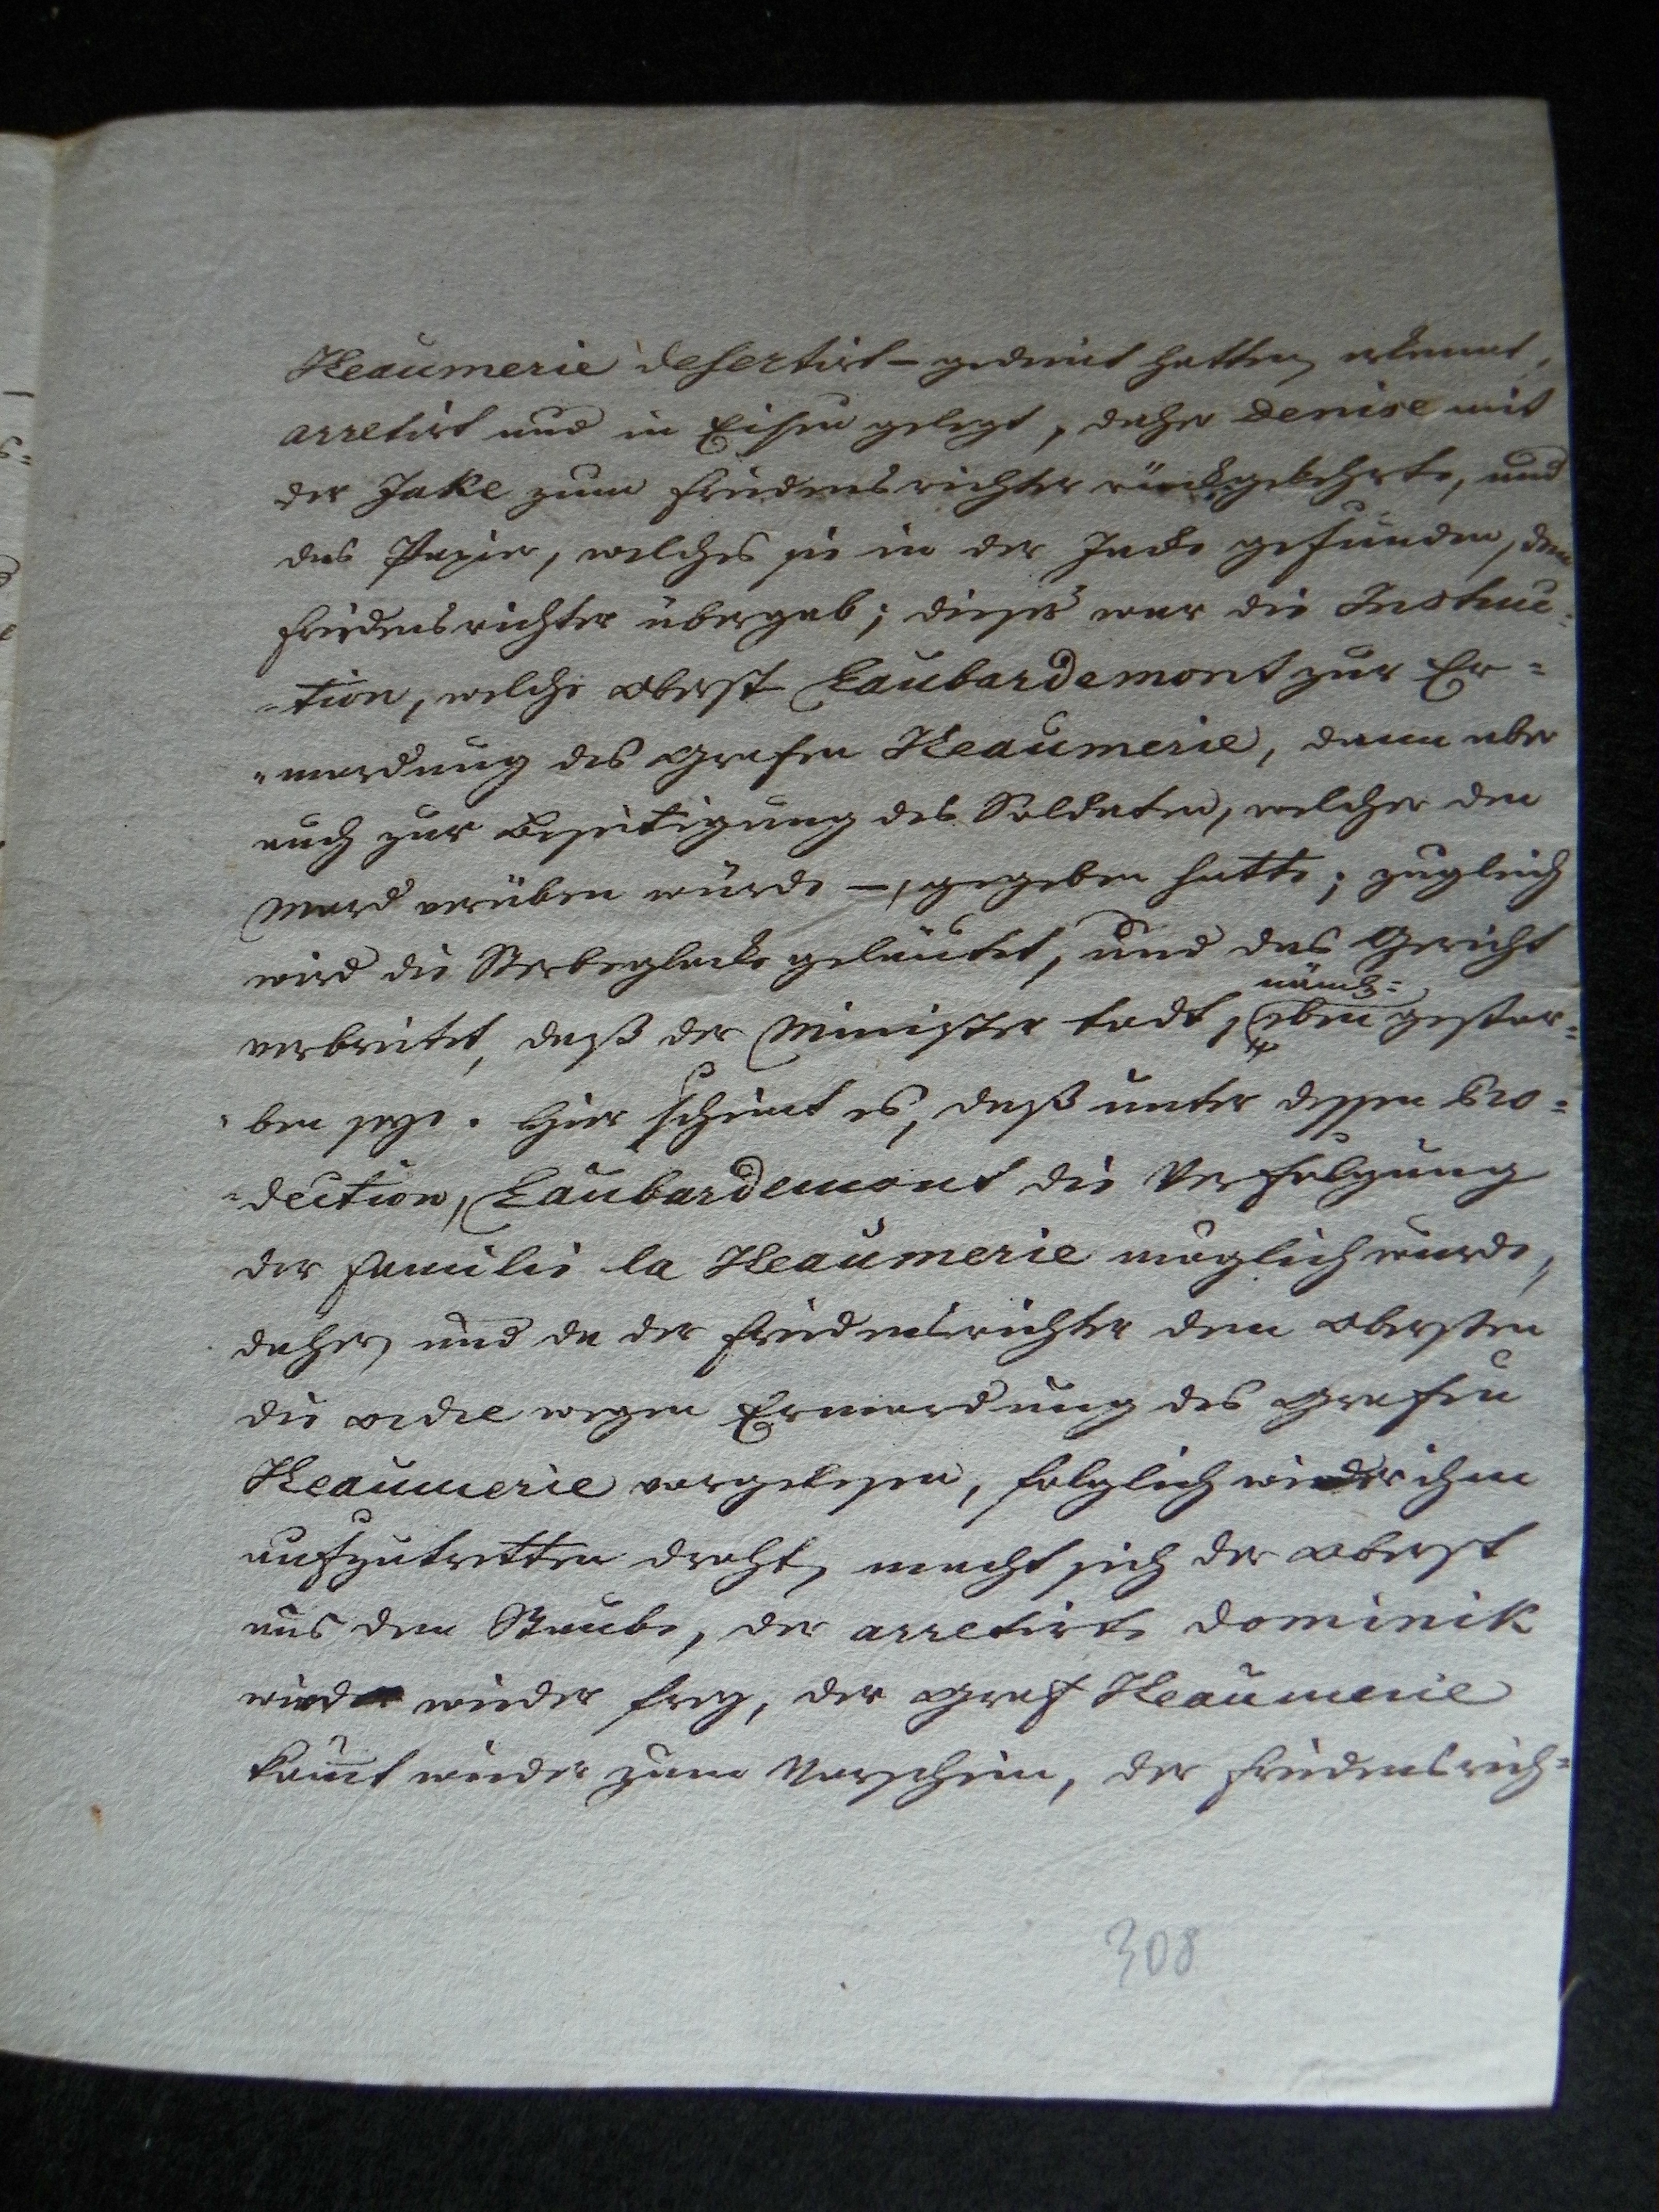 Heaumerie desertirt – gedient hatten, erkannt,
arretirt und in Eisen gelegt, daher Denise mit
der Jake zum Friedensrichter rückgekehrte, und
das Papier, welches sie in der Jacke gefunden, dem
Friedensrichter übergab; dieses war die Instruc=
=tion, welche Oberst Laubardemont zur Er=
=mordung des Grafen Heaumerie, dann aber
auch zur Beseitigung des Soldaten, welcher den
Mord verüben würde –, gegeben hatte; zugleich
wird die Sterbeglocke geläutet, und das Gericht
nämlich=
verbreitet, daß der Minister todt, eben gestor=
=ben seye. Hier scheint es, daß unter dessen Pro=
=dection, Laubardemont die Verfolgung
der Familie la Heaumerie möglich wurde,
daher, und da der Friedensrichter dem Obersten
die Ordre wegen Ermordung des Grafen
Heaumerie vorgelesen, folglich wieder ihm
aufzutretten droht, macht sich der Oberst
aus dem Staube, der arretirte Dominik
wird wieder frey, der Graf Heaumerie
kommt wieder zum Vorschein, der Friedensrich=
308